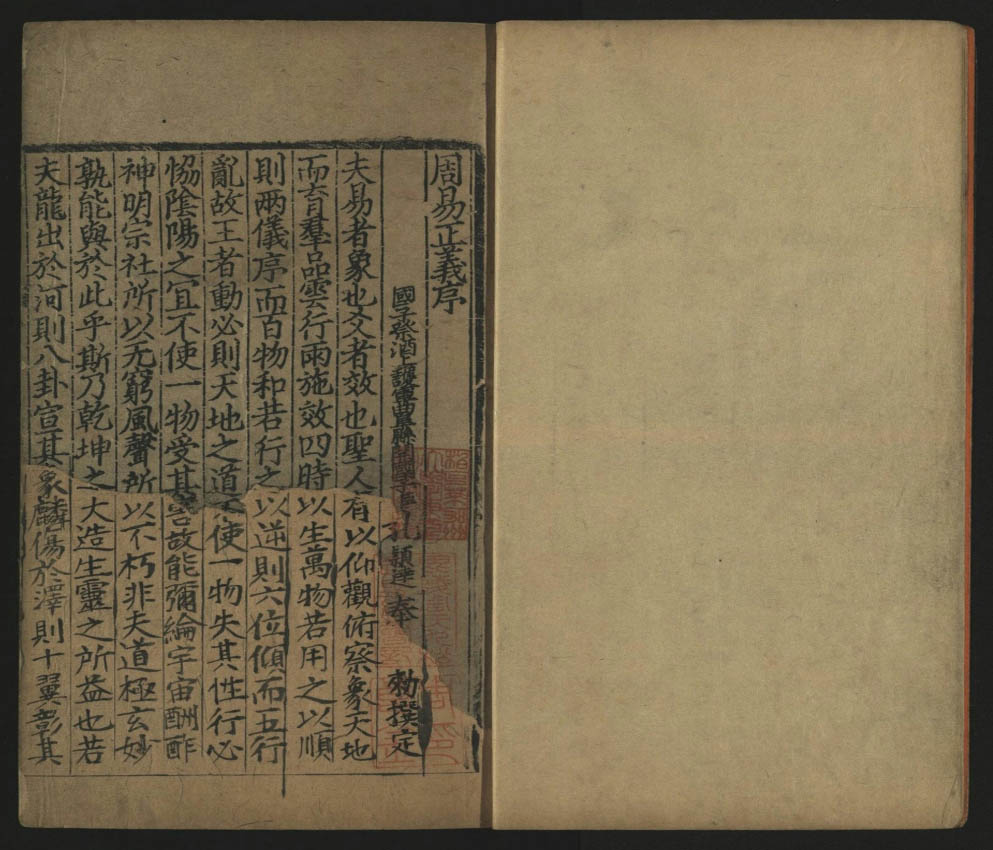 周易正義序
國子祭酒上護軍曲阜縣開國子臣孔穎達奉 勑撰定
夫易者象也爻者效也聖人有以仰觀俯察象天地
而育羣品雲行雨施效四時以生萬物若用之以順
則兩儀序而百物和若行之以逆則六位傾而五行
亂故王者動必則天地之道不使一物失其性行必
恊陰陽之冝不使一物受其害故能彌綸宇宙酬酢
神明宗社所以无窮風聲所以不朽非夫道極玄妙
孰能與於此乎斯乃乾坤之大造生靈之所益也若
夫龍出於河則八卦宣其象麟傷於澤則十翼彰其